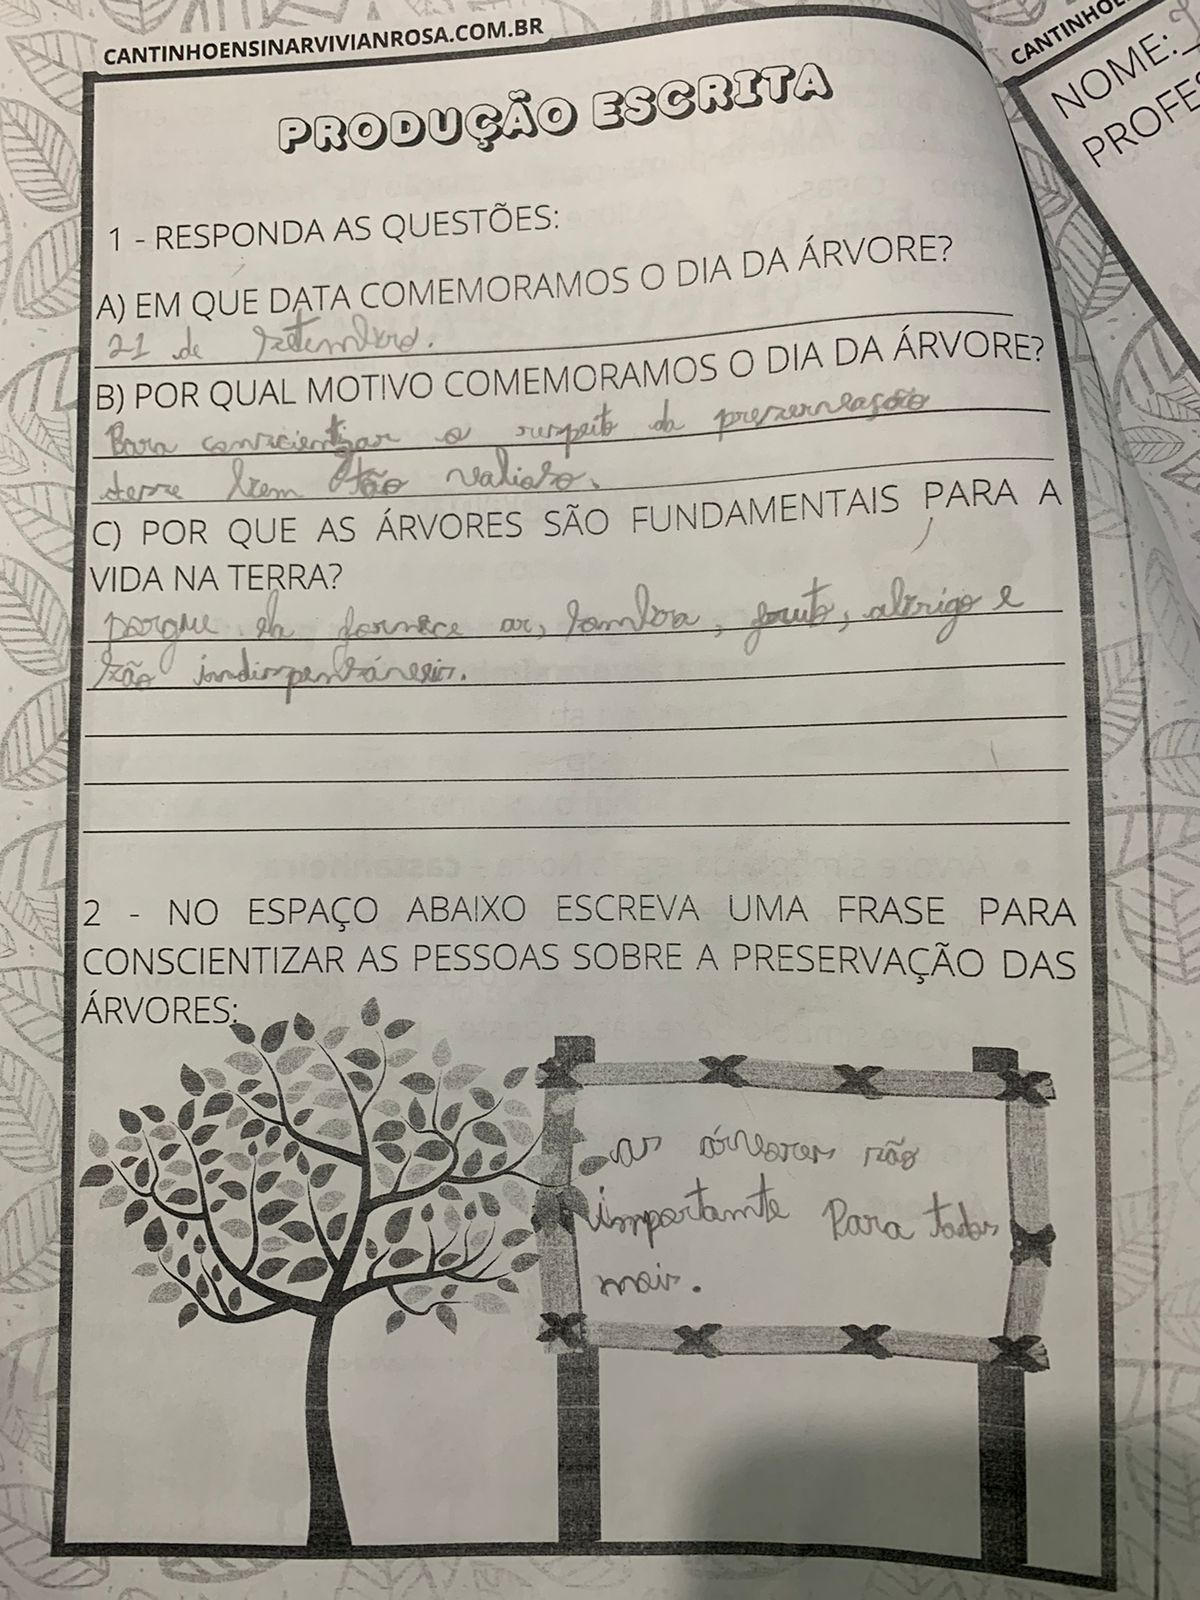 CANTINHOENSINARVIVIANROSA.COM.BR
CANTINHOE
NOME:
PROFES
PRODUÇÃO ESCRITA
1 - RESPONDA AS QUESTÕES:
A) EM QUE DATA COMEMORAMOS O DIA DA ÁRVORE?
21 de setembro.
B) POR QUAL MOTIVO COMEMORAMOS O DIA DA ÁRVORE?
Para conscientizar o respeito da preservação
desse bem tão valioso.
C) POR QUE AS ÁRVORES SÃO FUNDAMENTAIS PARA A
VIDA NA TERRA?
porque ela fornece ar, sombra, fruto, abrigo e
são indispensáveis.
2 - NO ESPAÇO ABAIXO ESCREVA UMA FRASE PARA
CONSCIENTIZAR AS PESSOAS SOBRE A PRESERVAÇÃO DAS
ÁRVORES:
as árvores são
importante Para todos
nois.